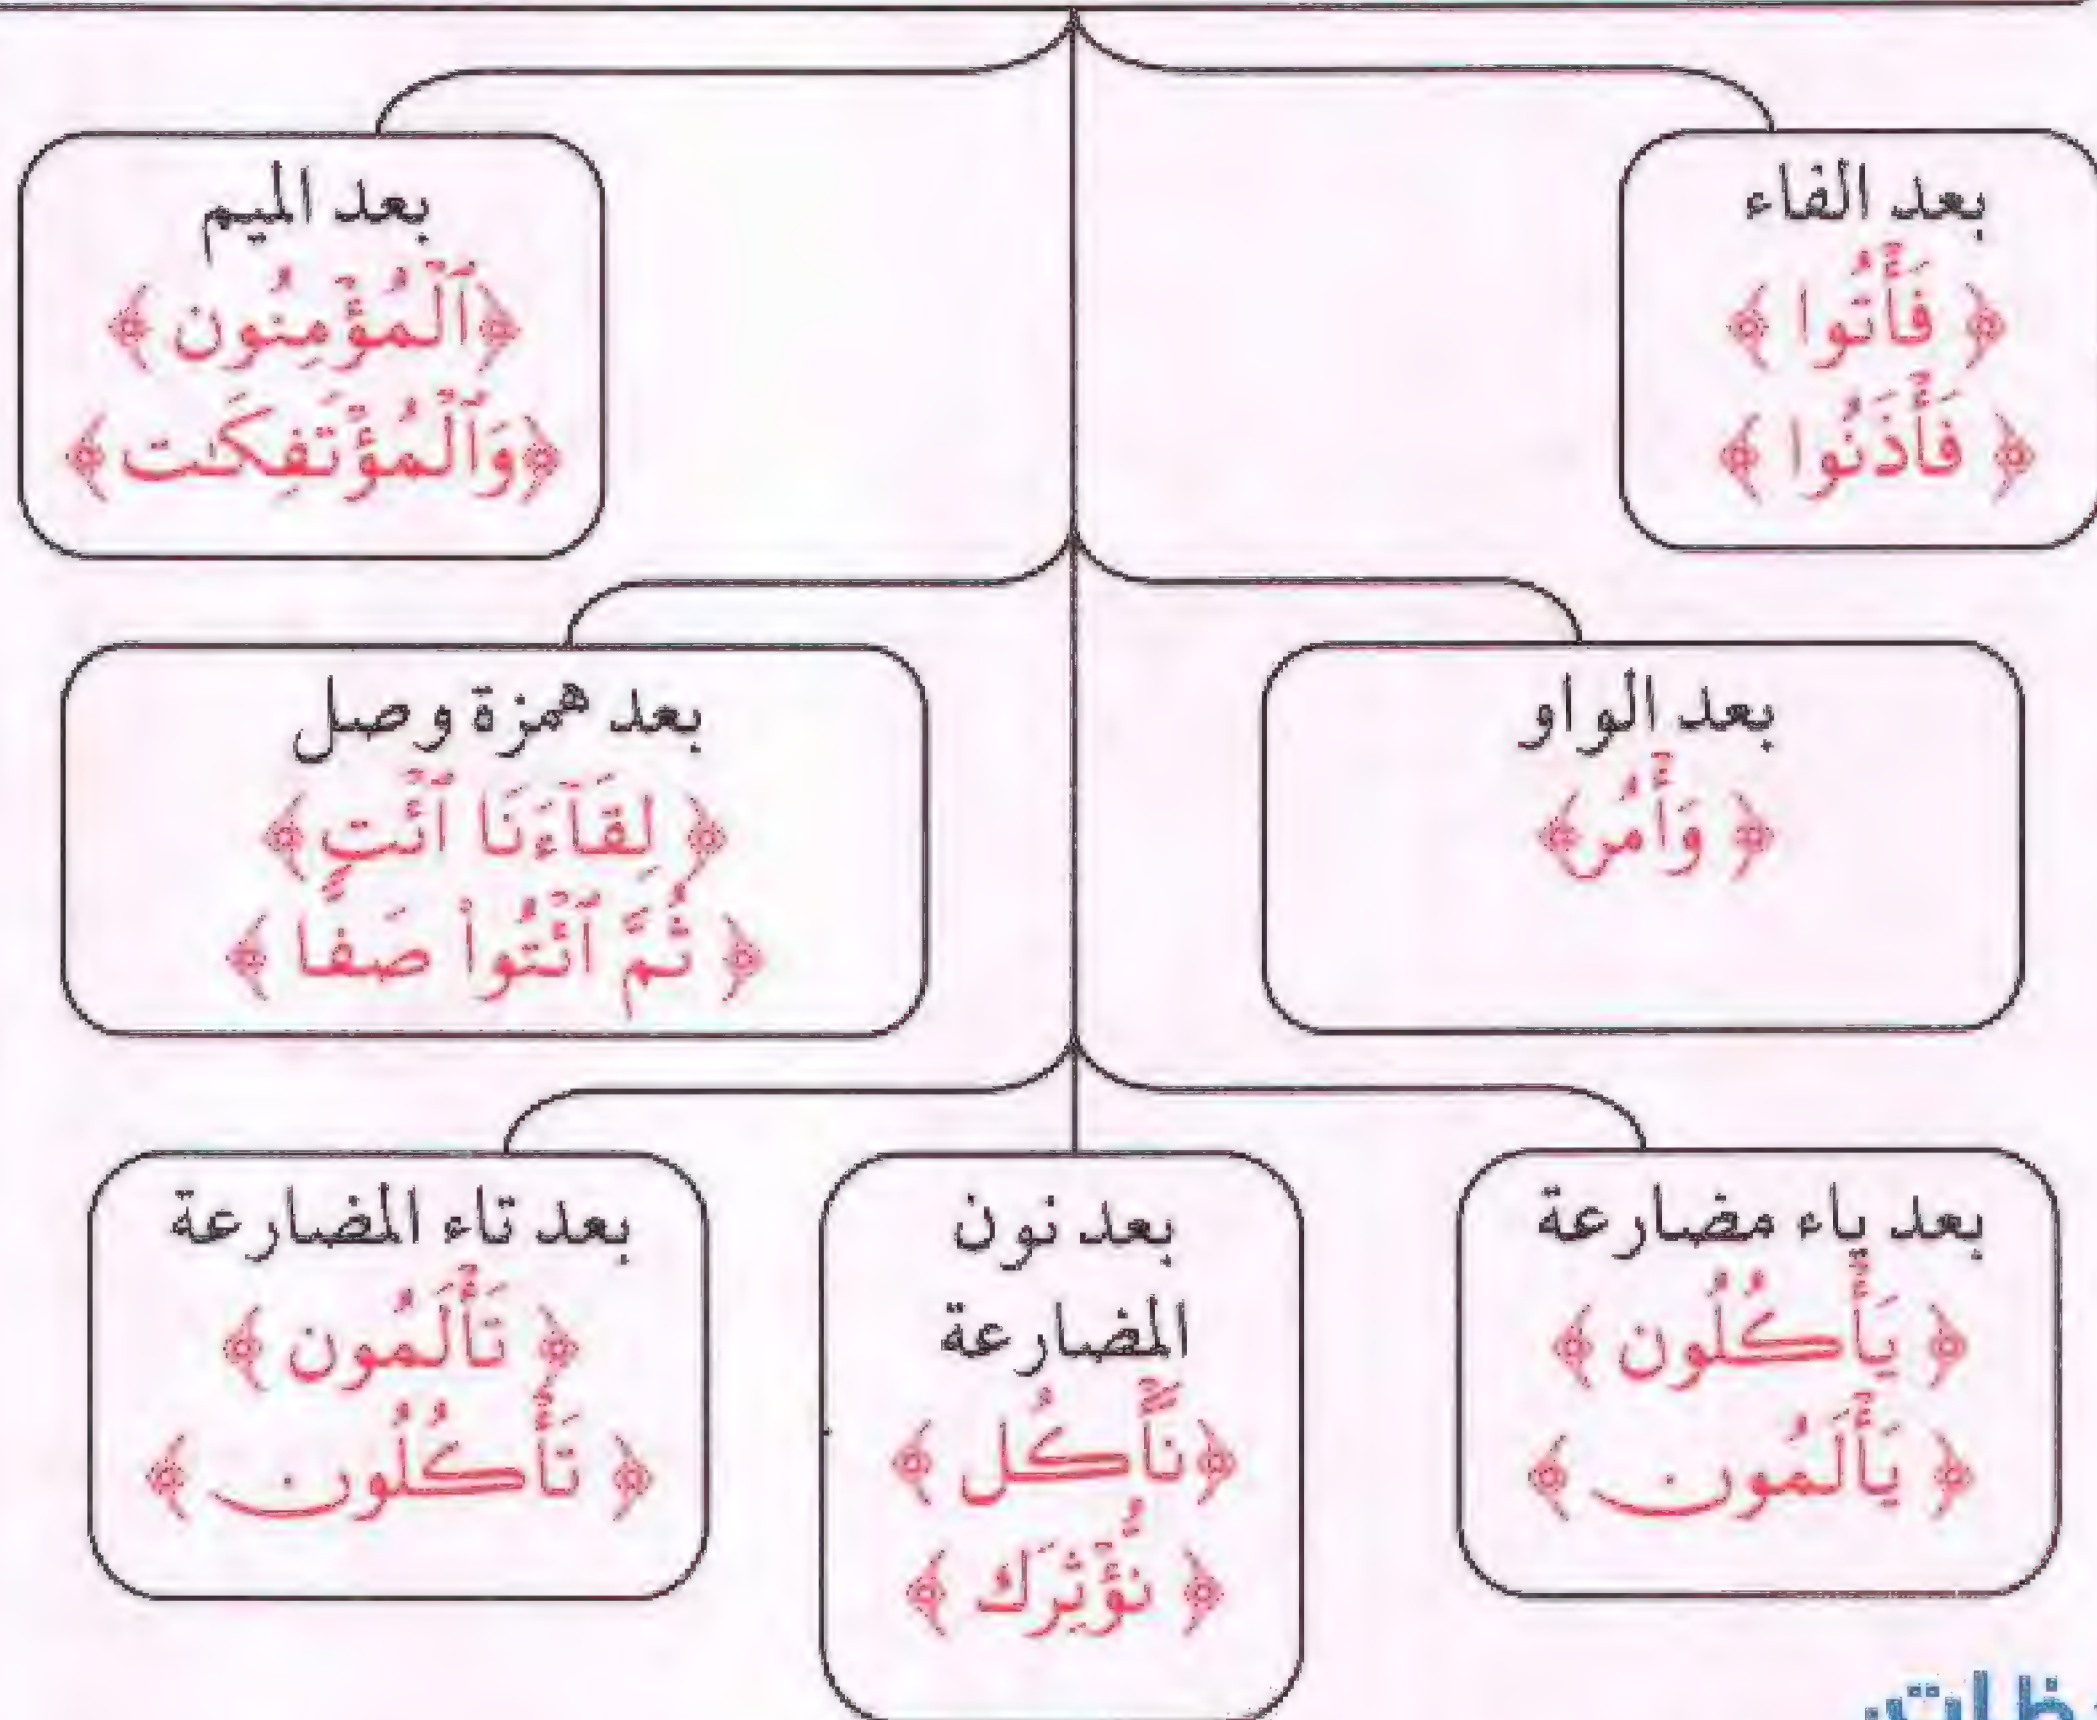 بعد الفاء
﴿ فَأْتُوا ﴾
﴿ فَأْذَنُوا ﴾
بعد الميم
﴿ٱلْمُؤْمِنُون ﴾
﴿وَٱلْمُؤْتَفِكَٰت﴾
بعد الواو
﴿ وَأْمُر﴾
بعد همزة وصل
﴿ لِقَآءَنَا ٱئْتِ﴾
﴿ ثُمَّ ٱئْتُواْ صَفًّا ﴾
بعد ياء مضارعة
﴿ يَأْكُلُون ﴾
﴿ يَأْلَمُون ﴾
بعد نون
المضارعة
﴿نَأْكُل ﴾
﴿ نُؤْثِرَك ﴾
بعد تاء المضارعة
﴿ تَأْلَمُون ﴾
﴿ تَأْكُلُون ﴾